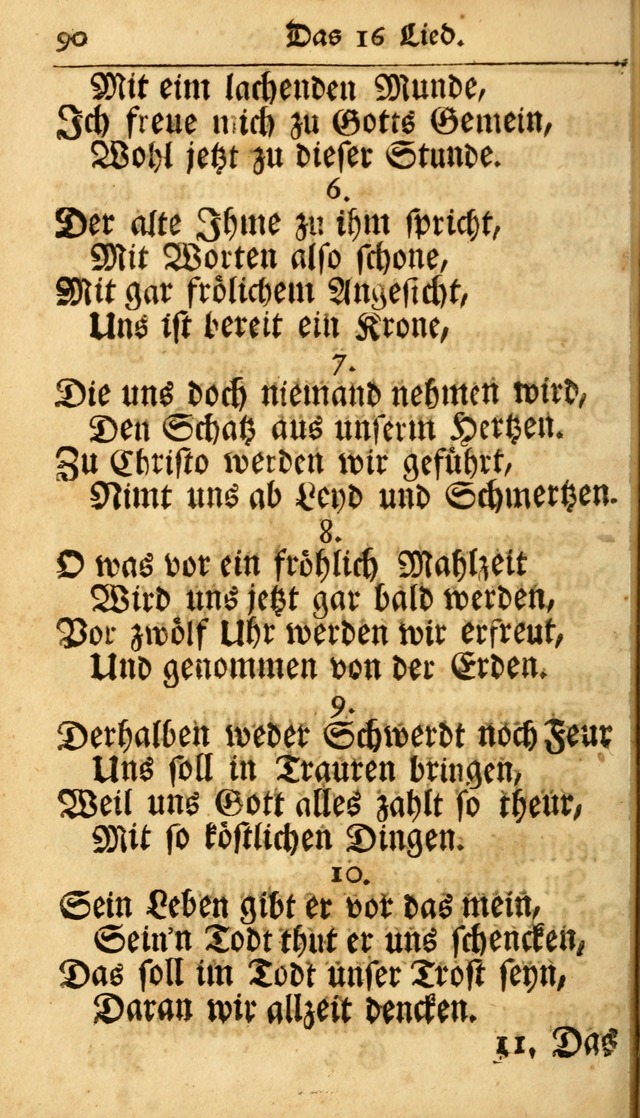 90 Das 16 Lied.
Mit eim lachenden Munde,
Ich freue mich zu Gotts Gemein,
Wohl jetzt zu dieser Stunde.
6.
Der alte Ihme zu ihm spricht,
Mit Worten also schone,
Mit gar frölichem Angesicht,
Uns ist bereit ein Krone,
7.
Die uns doch niemand nehmen wird,
Den Schatz aus unserm Hertzen.
Zu Christo werden wir geführt,
Nimt uns ab Leyd und Schmertzen.
8.
O was vor ein fröhlich Mahlzeit
Wird uns jetzt gar bald werden,
Vor zwölf Uhr werden wir erfreut,
Und genommen von der Erden.
9.
Derhalben weder Schwerdt noch Feur
Uns soll in Trauren bringen,
Weil uns Gott alles zahlt so theur,
Mit so köstlichen Dingen.
10.
Sein Leben gibt er vor das mein,
Sein'n Todt thut er uns schencken,
Das soll im Todt unser Trost seyn,
Daran wir allzeit dencken.
11. Das